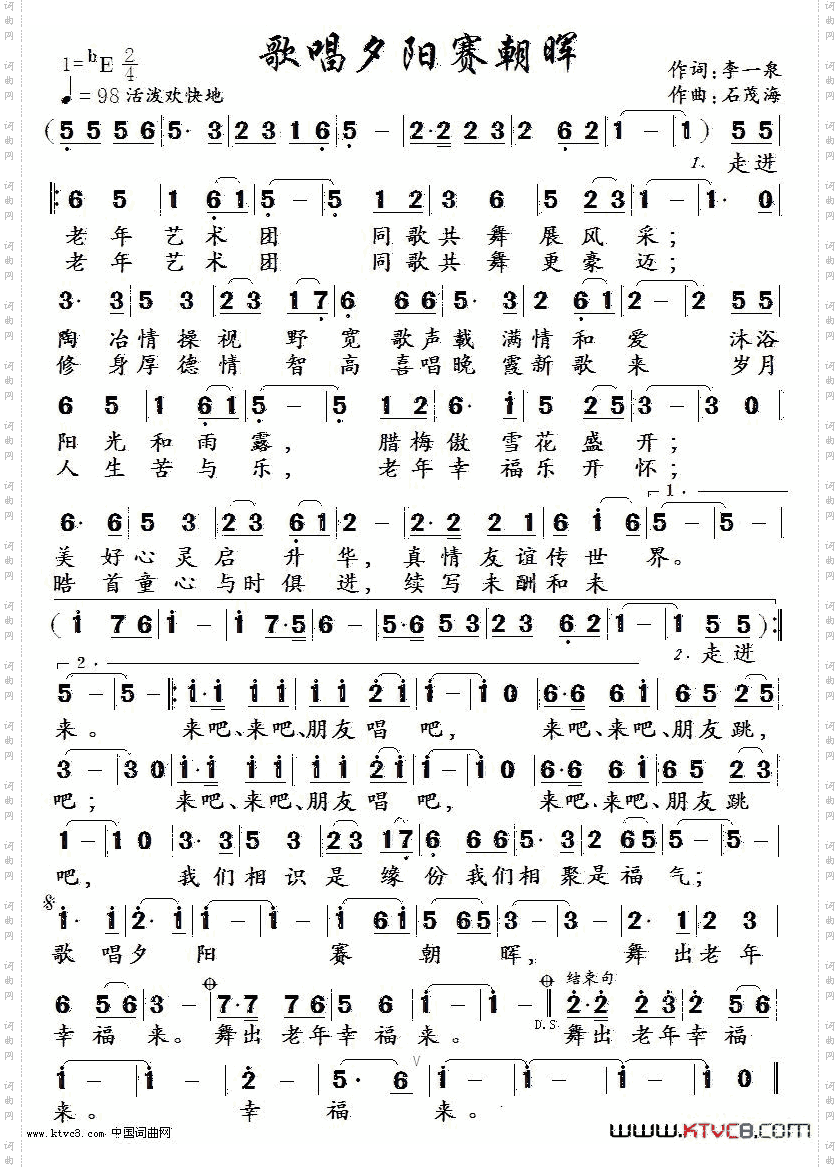 歌唱夕阳赛朝晖
1=ᵇE 2/4
作词:李一泉
♩=98 活泼欢快地
作曲:石茂海
(5 5 5 6 | 5· 3 | 2 3 1 6 | 5 - | 2·2 2 3 | 2 6 2 | 1 - | 1) 5 5
1. 走进
6 5 | 1 6 1 | 5 - | 5 1 2 | 3 6 | 5 2 3 | 1 - | 1· 0
老年艺术团 同歌共舞展风采;
老年艺术团 同歌共舞更豪迈;
3· 3 | 5 3 | 2 3 1 7 | 6 6 6 | 5· 3 | 2 6 1 | 2 - | 2 5 5
陶冶情操视野宽歌声載满情和爱 沐浴
修身厚德情智高喜唱晚霞新歌来 岁月
6 5 | 1 6 1 | 5 - | 5 1 2 | 6· i | 5 2 5 | 3 - | 3 0
阳光和雨露, 腊梅傲雪花盛开;
人生苦与乐, 老年幸福乐开怀;
1.
6· 6 | 5 3 | 2 3 6 1 | 2 - | 2· 2 2 1 | 6 i 6 | 5 - | 5 -
美好心灵启升华, 真情友谊传世界。
晧首童心与时俱进, 续写未酬和未
(i 7 6 | i - | i 7·5 | 6 - | 5·6 5 3 | 2 3 6 2 | 1 - | 1 5 5) :||
2. 走进
2.
5 - | 5 - |: i·i i i | i i 2 i | i - | i 0 | 6·6 6 i | 6 5 2 5
来。 来吧、来吧、朋友唱吧, 来吧、来吧、朋友跳,
3 - | 3 0 | i·i i i | i i 2 i | i - | i 0 | 6·6 6 i | 6 5 2 3
吧; 来吧、来吧、朋友唱吧, 来吧、来吧、朋友跳
1 - | 1 0 | 3· 3 | 5 3 | 2 3 1 7 | 6 6 6 | 5· 3 | 2 6 5 | 5 - | 5 -
吧, 我们相识是缘份我们相聚是福气;
i· i | 2· i | i - | i 6 i | 5 6 5 | 3 - | 3 - | 2· 1 | 2 3
歌唱夕阳赛朝晖, 舞出老年
结束句
6 5 6 | 3 - | 7·7 7 6 | 5 5 6 | i - | i - || 2·2 2 3 | 2 6
D.S
幸福来。舞出老年幸福来。 舞出老年幸福
i - | i - | 2 - | 5· 6 | i - | i - | i - | i 0
V
来。 幸福来。
www.ktvc8.com 中国词曲网
www.KTVC8.COM
词曲网